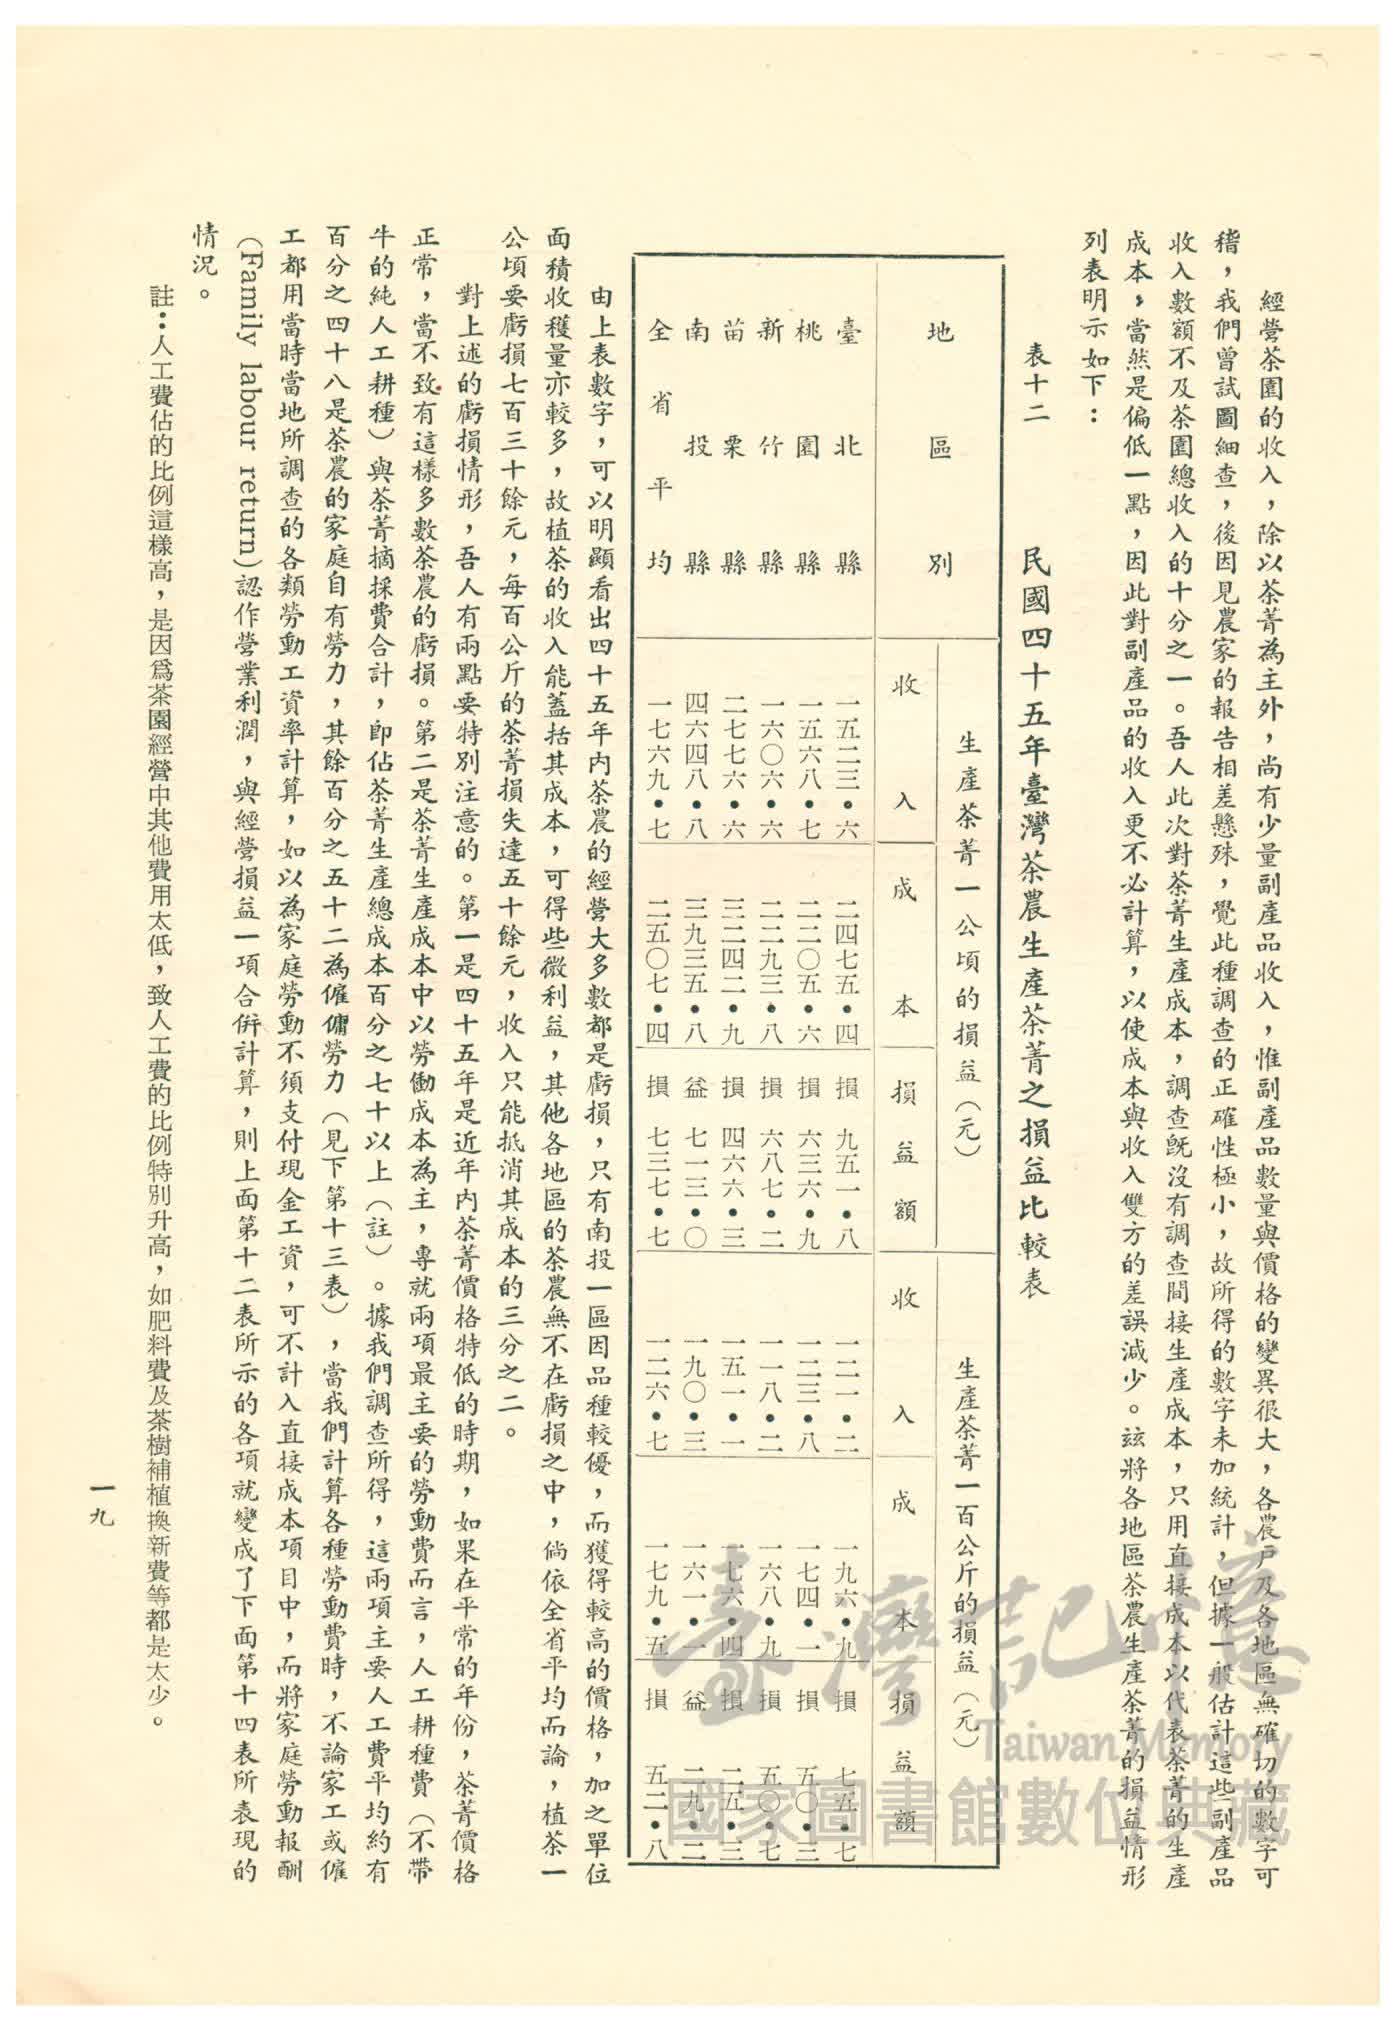 經營茶園的收入，除以茶菁為主外，尚有少量副產品收入，惟副產品數量與價格的變異很大，各農戶及各地區無確切的數字可
稽，我們曾試圖細查，後因見農家的報告相差懸殊，覺此種調查的正確性極小，故所得的數字未加統計，但據一般估計這些副產品
收入數額不及茶園總收入的十分之一。吾人此次對茶菁生產成本，調查既沒有調查間接生產成本，只用直接成本以代表茶菁的生產
成本，當然是偏低一點，因此對副產品的收入更不必計算，以使成本與收入雙方的差誤減少。玆將各地區茶農生產茶菁的損益情形
列表明示如下：
表十二　民國四十五年臺灣茶農生產茶菁之損益比較表
地區別　生產茶菁一公頃的損益（元）　生產茶菁一百公斤的損益（元）
收入　成本　損益額　收入　成本　損益額
臺北縣　一五二三•六　二四七五•四　損　九五一•八　一二一•二　一九六•九　損　七五•七
桃園縣　一五六八•七　二二〇五•六　損　六三六•九　一二三•八　一七四•一　損　五〇•三
新竹縣　一六〇六•六　二二九三•八　損　六八七•二　一一八•二　一六八•九　損　五〇•七
苗栗縣　二七七六•六　三二四二•九　損　四六六•三　一五一•一　一七六•四　損　二五•三
南投縣　四六四八•八　三九三五•八　益　七一三•〇　一九〇•三　一六一•一　益　二九•二
全省平均　一七六九•七　二五〇七•四　損　七三七•七　一二六•七　一七九•五　損　五二•八
由上表數字，可以明顯看出四十五年內茶農的經營大多數都是虧損，只有南投一區因品種較優，而獲得較高的價格，加之單位
面積收穫量亦較多，故植茶的收入能蓋括其成本，可得些微利益，其他各地區的茶農無不在虧損之中，倘依全省平均而論，植茶一
公頃要虧損七百三十餘元，每百公斤的茶菁損失達五十餘元，收入只能抵消其成本的三分之二。
對上述的虧損情形，吾人有兩點要特別注意的。第一是四十五年是近年內茶菁價格特低的時期，如果在平常的年份，茶菁價格
正常，當不致有這樣多數茶農的虧損。第二是茶菁生產成本中以勞働成本為主，專就兩項最主要的勞動費而言，人工耕種費（不帶
牛的純人工耕種）與茶菁摘採費合計，即佔茶菁生產總成本百分之七十以上（註）。據我們調查所得，這兩項主要人工費平均約有
百分之四十八是茶農的家庭自有勞力，其餘百分之五十二為僱傭勞力（見下第十三表），當我們計算各種勞動費時，不論家工或僱
工都用當時當地所調查的各類勞動工資率計算，如以為家庭勞動不須支付現金工資，可不計入直接成本項目中，而將家庭勞動報酬
（Family labour return）認作營業利潤，與經營損益一項合併計算，則上面第十二表所示的各項就變成了下面第十四表所表現的
情況。
註：人工費佔的比例這樣高，是因爲茶園經營中其他費用太低，致人工費的比例特別升高，如肥料費及茶樹補植換新費等都是太少。
一九
臺灣記憶
Taiwan Memory
國家圖書館數位典藏